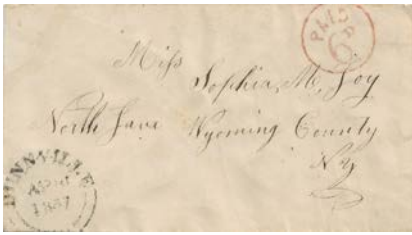 PAID
6D
Miss
Sophia M. Joy
North Java Wyoming County
N.Y
DUNNVILLE
1857